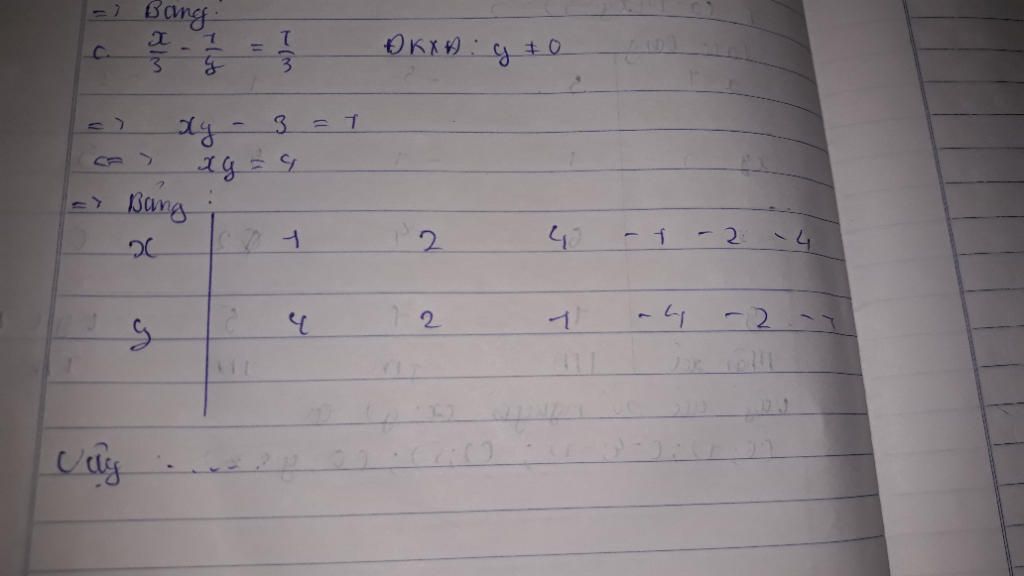 => Bảng:
c. x/3 - 1/y = 1/3 ĐKXĐ: y ≠ 0
=> xy - 3 = 1
<=> xy = 4
=> Bảng :
x | 1 2 4 -1 -2 -4
y | 4 2 1 -4 -2 -1
Vậy .....